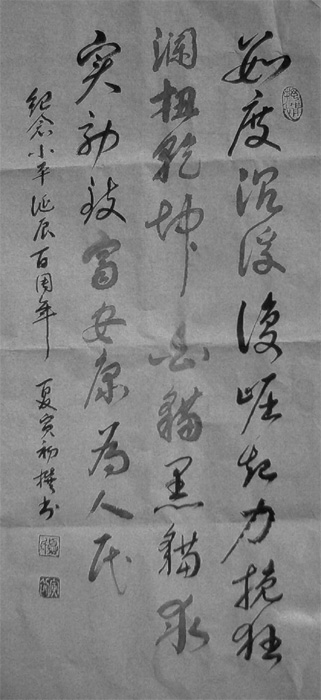 幾度沉浮復崛起力挽狂
瀾扭乾坤白貓黑貓求
实効致富安康為人民
紀念小平诞辰百周年 夏寅初撰书